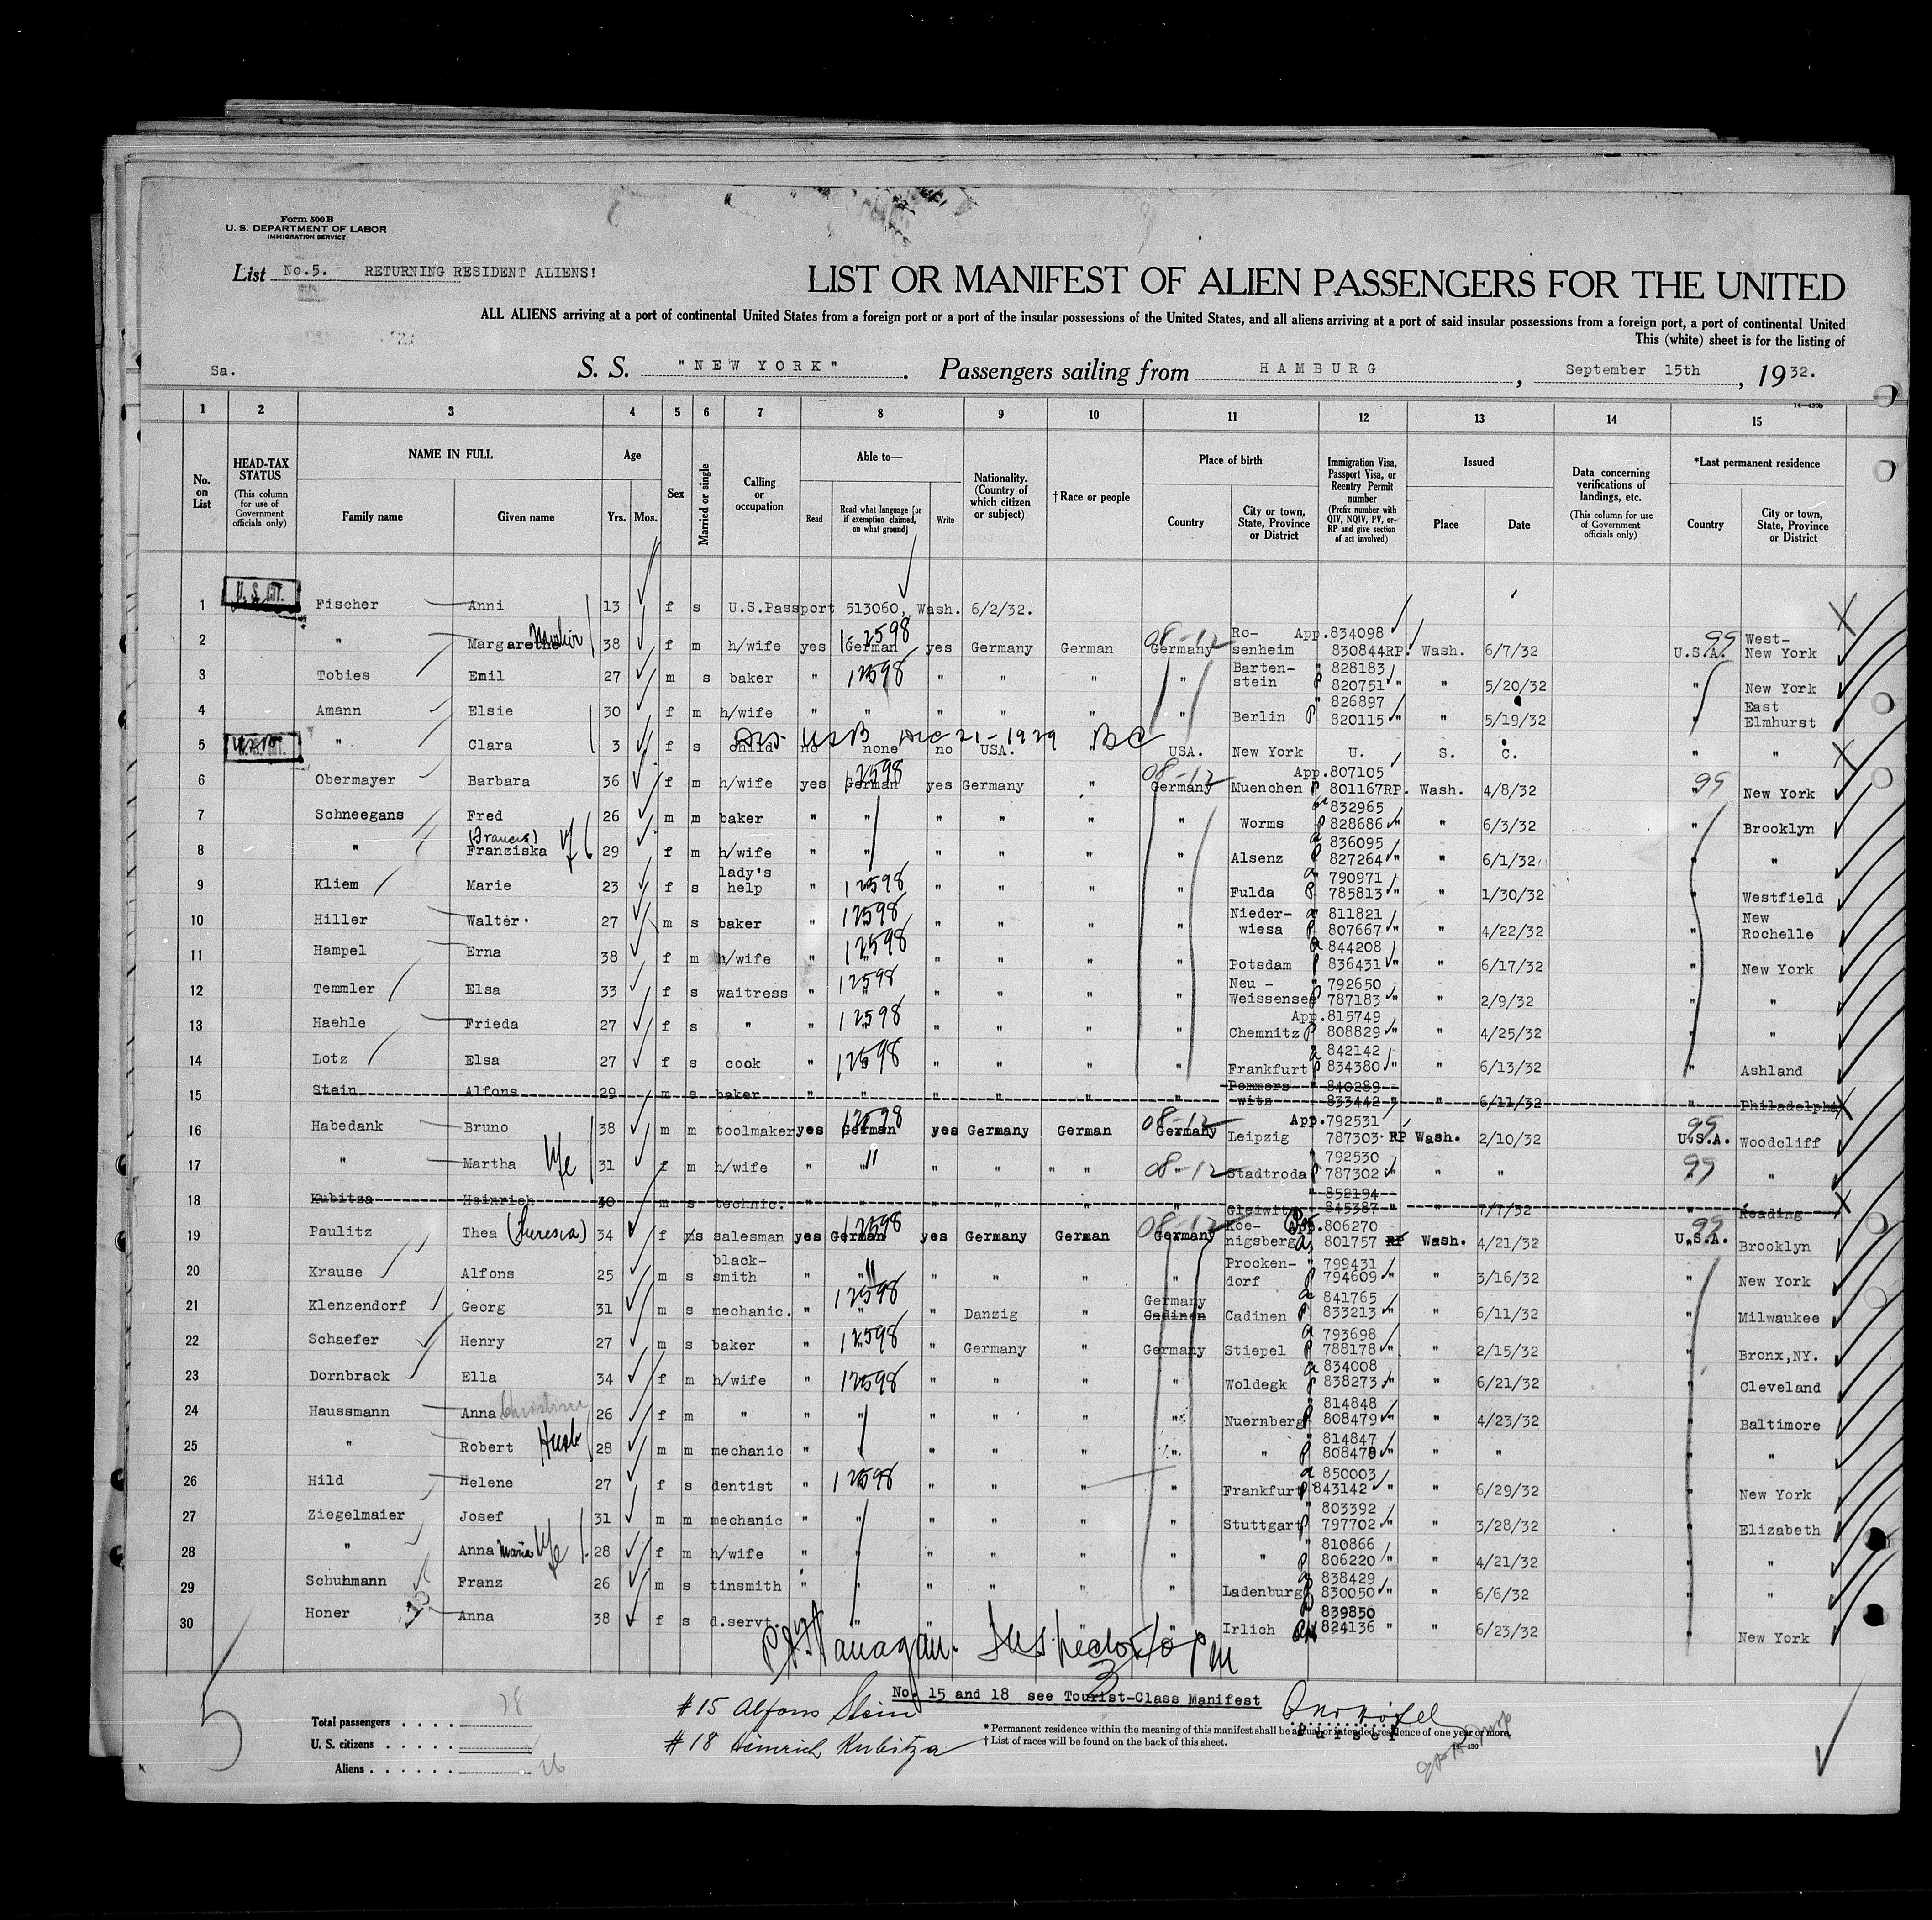 Form 500 B
U. S. DEPARTMENT OF LABOR
IMMIGRATION SERVICE
List No.5. RETURNING RESIDENT ALIENS!
LIST OR MANIFEST OF ALIEN PASSENGERS FOR THE UNITED
ALL ALIENS arriving at a port of continental United States from a foreign port or a port of the insular possessions of the United States, and all aliens arriving at a port of said insular possessions from a foreign port, a port of continental United
This (white) sheet is for the listing of
Sa. S. S. "NEW YORK". Passengers sailing from HAMBURG, September 15th, 1932.
14-430b
1 2 3 4 5 6 7 8 9 10 11 12 13 14 15
No. on List
HEAD-TAX STATUS (This column for use of Government officials only)
NAME IN FULL Family name Given name
Age Yrs. Mos.
Sex
Married or single
Calling or occupation
Able to— Read Read what language [or if exemption claimed, on what ground] Write
Nationality. (Country of which citizen or subject)
†Race or people
Place of birth Country City or town, State, Province or District
Immigration Visa, Passport Visa, or Reentry Permit number (Prefix number with QIV, NQIV, PV, or RP and give section of act involved)
Issued Place Date
Data concerning verifications of landings, etc. (This column for use of Government officials only)
*Last permanent residence Country City or town, State, Province or District
1 U.S. CIT. Fischer Anni 13 f s U.S.Passport 513060, Wash. 6/2/32.
2 " Margarethe 38 f m h/wife yes 1-2598 German yes Germany German 08-12 Germany Rosenheim App.834098 830844RP. Wash. 6/7/32 99 U.S.A. West-New York
3 Tobies Emil 27 m s baker " 12598 " " " " Barten-stein " 828183 P 820751 " " 5/20/32 " New York
4 Amann Elsie 30 f m h/wife " " " " " " Berlin " 826897 P 820115 " " 5/19/32 " East Elmhurst
5 " Clara 3 f s child no none no USA. " USA. New York U. S. C. " "
Dec 21-1929 BC
6 Obermayer Barbara 36 f m h/wife yes 12598 German yes Germany " 08-12 Germany Muenchen App.807105 P 801167RP. Wash. 4/8/32 99 " New York
7 Schneegans Fred 26 m m baker " " " " " " Worms 832965 P 828686 " " 6/3/32 " Brooklyn
8 " (Frances) Franziska 29 f m h/wife " " " " " " Alsenz a 836095 P 827264 " " 6/1/32 " "
9 Kliem Marie 23 f s lady's help " 12598 " " " " Fulda a 790971 P 785813 " " 1/30/32 " Westfield
10 Hiller Walter 27 m s baker " 12598 " " " " Nieder-wiesa a 811821 P 807667 " " 4/22/32 " New Rochelle
11 Hampel Erna 38 f m h/wife " 12598 " " " " Potsdam a 844208 P 836431 " " 6/17/32 " New York
12 Temmler Elsa 33 f s waitress " 12598 " " " " Neu-Weissensee " 792650 P 787183 " " 2/9/32 " "
13 Haehle Frieda 27 f s " " 12598 " " " " Chemnitz App.815749 P 808829 " " 4/25/32 " "
14 Lotz Elsa 27 f s cook " 12598 " " " " Frankfurt a 842142 P 834380 " " 6/13/32 " Ashland
15 Stein Alfons 29 m s baker " " " " " " Pommers-witz " 840289 833442 " " 6/11/32 " Philadelphia
16 Habedank Bruno 38 m m toolmaker yes 12598 German yes Germany German 08-12 Germany Leipzig App.792531 787303 RP Wash. 2/10/32 99 U.S.A. Woodcliff
17 " Martha 31 f m h/wife " " " " " 08-12 " Stadtroda " 792530 P 787302 " " " 99 " "
18 Kubitza Heinrich 30 m s technic. " " " " " " Gleiwitz " 852194 845387 " " 7/7/32 " Reading
19 Paulitz Thea (Teresia) 34 f s salesman yes 12598 German yes Germany German 08-12 Germany Koe-nigsberg App.806270 801757 RP Wash. 4/21/32 99 U.S.A. Brooklyn
20 Krause Alfons 25 m s black-smith " " " " " " Procken-dorf " 799431 P 794609 " " 3/16/32 " New York
21 Klenzendorf Georg 31 m s mechanic. " 12598 " Danzig " Germany Cadinen Cadinen a 841765 P 833213 " " 6/11/32 " Milwaukee
22 Schaefer Henry 27 m s baker " 12598 " Germany " Germany Stiepel a 793698 P 788178 " " 2/15/32 " Bronx,NY.
23 Dornbrack Ella 34 f m h/wife " 12598 " " " " Woldegk a 834008 P 838273 " " 6/21/32 " Cleveland
24 Haussmann Anna Christine 26 f m " " " " " " " Nuernberg " 814848 P 808479 " " 4/23/32 " Baltimore
25 " Robert Husb 28 m m mechanic " " " " " " " " 814847 P 808478 " " " " "
26 Hild Helene 27 f s dentist " 12598 " " " " Frankfurt a 850003 P 843142 " " 6/29/32 " New York
27 Ziegelmaier Josef 31 m m mechanic " " " " " " Stuttgart " 803392 P 797702 " " 3/28/32 " Elizabeth
28 " Anna Maria 28 f m h/wife " " " " " " " " 810866 P 806220 " " 4/21/32 " "
29 Schuhmann Franz 26 m s tinsmith " " " " " " Ladenburg a 838429 P 830050 " " 6/6/32 " "
30 Honer Anna 38 f s d.servt. " " " " " " Irlich 839850 824136 " " 6/23/32 " New York
Inspector
No. 15 and 18 see Tourist-Class Manifest
#15 Alfons Stein
#18 Heinrich Kubitza
Purser
Total passengers . . . . 28
U. S. citizens . . . . .
Aliens . . . . . . 26
* Permanent residence within the meaning of this manifest shall be actual or intended residence of one year or more.
† List of races will be found on the back of this sheet.
14-430
5